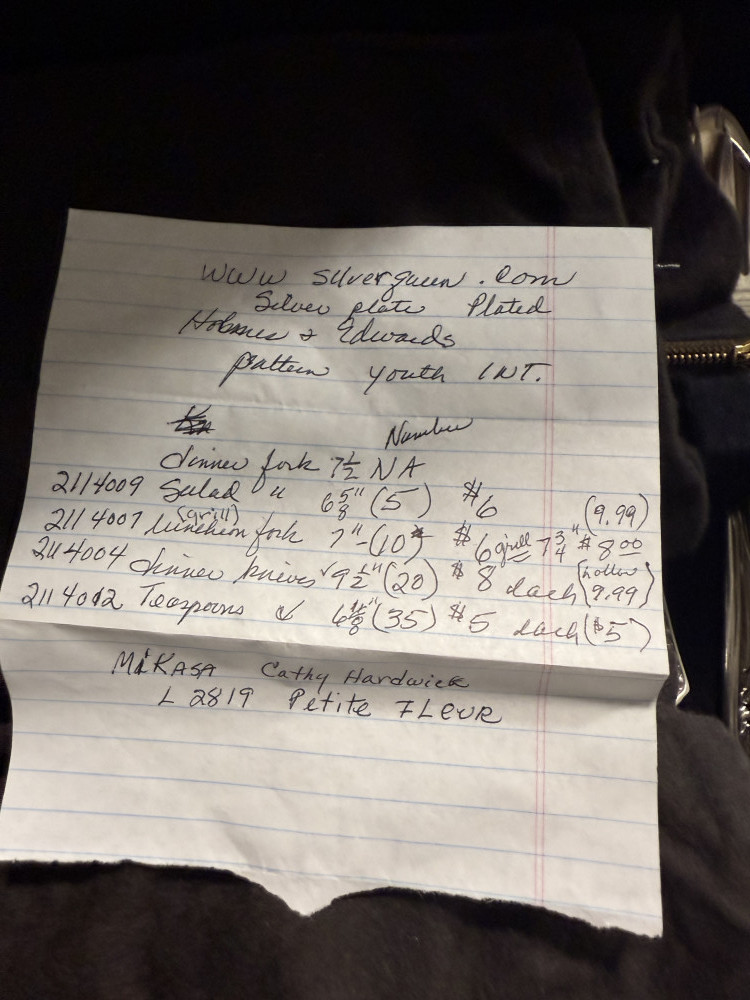 www silverqueen.com
Silver plate Plated
Holmes & Edwards
pattern youth INT.
Number
dinner fork 7 1/2 NA
2114009 Salad " 6 5/8" (5) $6 (9.99)
(grill)
2114007 luncheon fork 7" - (10) $6 grill 7 3/4" $8.00
2114004 dinner knives ✓ 9 1/2" (20) $8 each (hollow 9.99)
2114012 Teaspoons ✓ (35) $5 each ($5)
MIKASA Cathy Hardwick
L 2819 Petite FLEUR